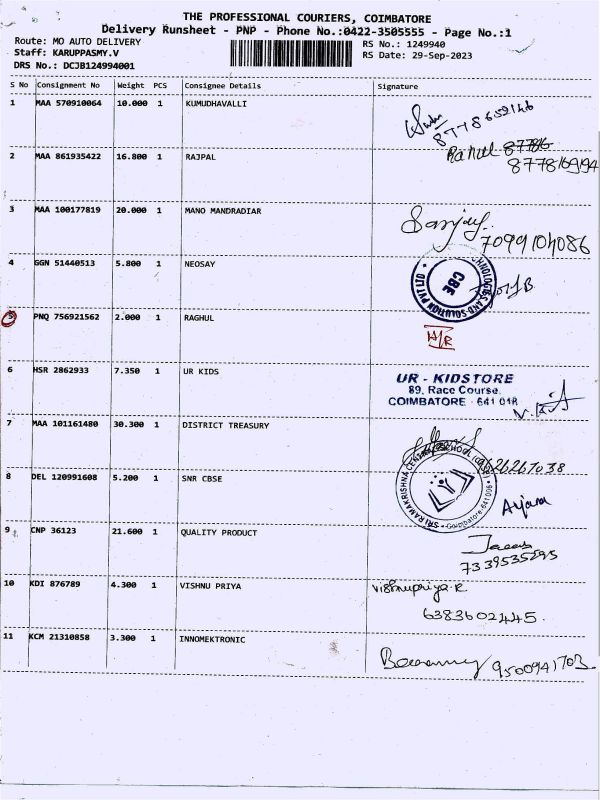 THE PROFESSIONAL COURIERS, COIMBATORE
Delivery Runsheet - PNP - Phone No.:0422-3505555 - Page No.:1
Route: MO AUTO DELIVERY
RS No.: 1249940
Staff: KARUPPASMY.V
RS Date: 29-Sep-2023
DRS No.: DCJB124994001
S No Consignment No Weight PCS Consignee Details Signature
1 MAA 570910064 10.000 1 KUMUDHAVALLI
8778652146
2 MAA 861935422 16.800 1 RAJPAL
Rahul 877816
8778169194
3 MAA 100177819 20.000 1 MANO MANDRADIAR
Sanjay
7099104086
4 GGN 51440513 5.800 1 NEOSAY
CBE
5 PNQ 756921562 2.000 1 RAGHUL
H/R
6 HSR 2862933 7.350 1 UR KIDS
UR - KIDSTORE
89, Race Course,
COIMBATORE - 641 018
7 MAA 101161480 30.300 1 DISTRICT TREASURY
8 DEL 120991608 5.200 1 SNR CBSE
SRI RAMAKRISHNA
Coimbatore-641006
9 CNP 36123 21.600 1 QUALITY PRODUCT
7339535295
10 KDI 876789 4.300 1 VISHNU PRIYA
Vishnupriya.R
6383602445.
11 KCM 21310858 3.300 1 INNOMEKTRONIC
9500941703